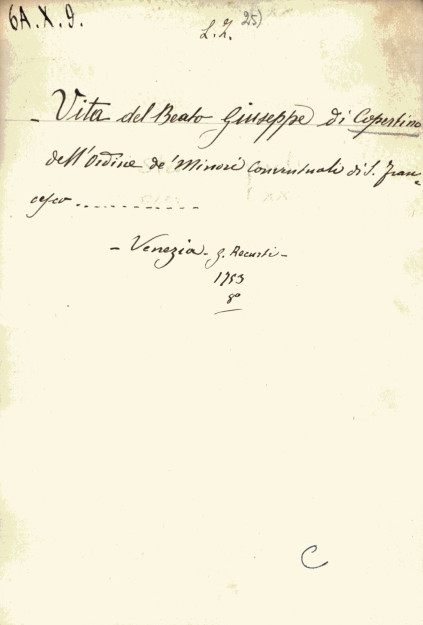 6A.X.9.
L.Z. 25)
- Vita del Beato Giuseppe di Copertino
dell'Ordine de' Minori Conventuali di S. Fran=
cesco ..............
- Venezia - G. Recurti -
1753
8°
C